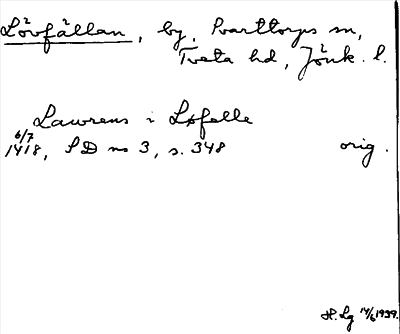 Lövfällan, by, Barttorps sn,
Tveta hd, Jönk. l.
Lawrens i Løfelle
6/7
1418, SD ns 3, s. 348 orig.
H. Lg 14/6 1939.